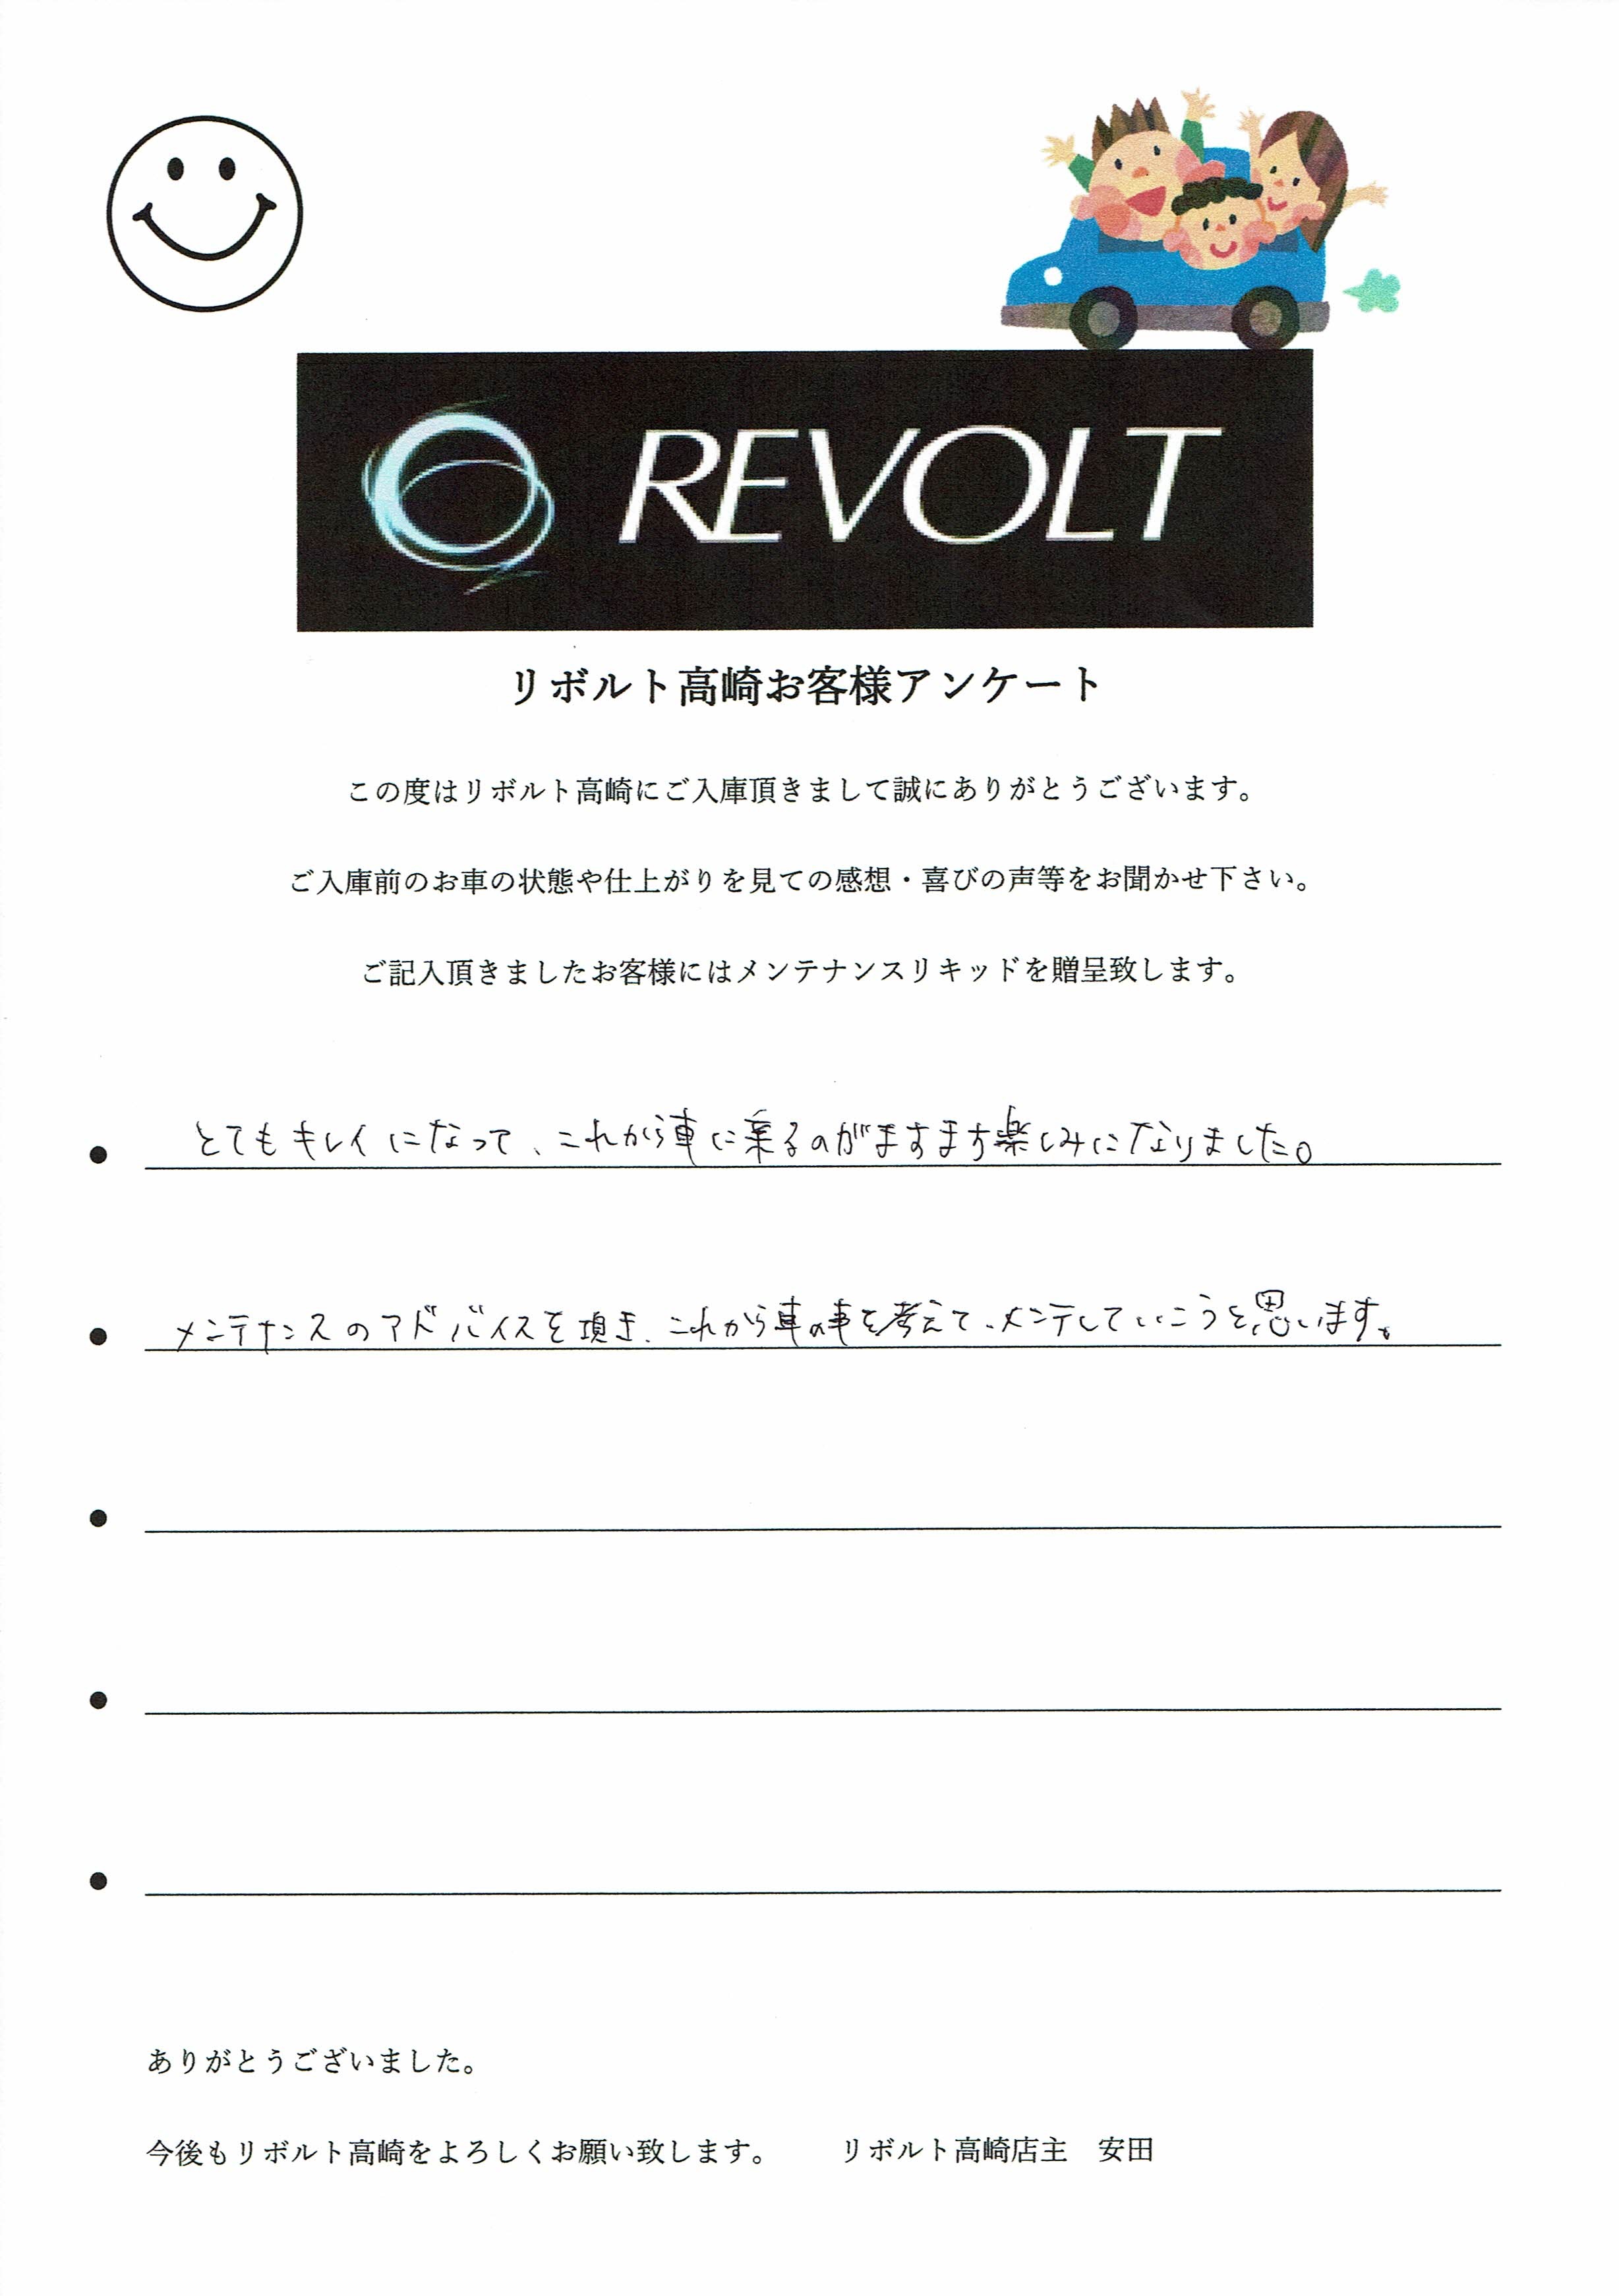 REVOLT
リボルト高崎お客様アンケート
この度はリボルト高崎にご入庫頂きまして誠にありがとうございます。
ご入庫前のお車の状態や仕上がりを見ての感想・喜びの声等をお聞かせ下さい。
ご記入頂きましたお客様にはメンテナンスリキッドを贈呈致します。
とてもキレイになって、これから車に乗るのがますます楽しみになりました。
メンテナンスのアドバイスを頂き、これから車の事を考えて、メンテしていこうと思います。
ありがとうございました。
今後もリボルト高崎をよろしくお願い致します。 リボルト高崎店主 安田